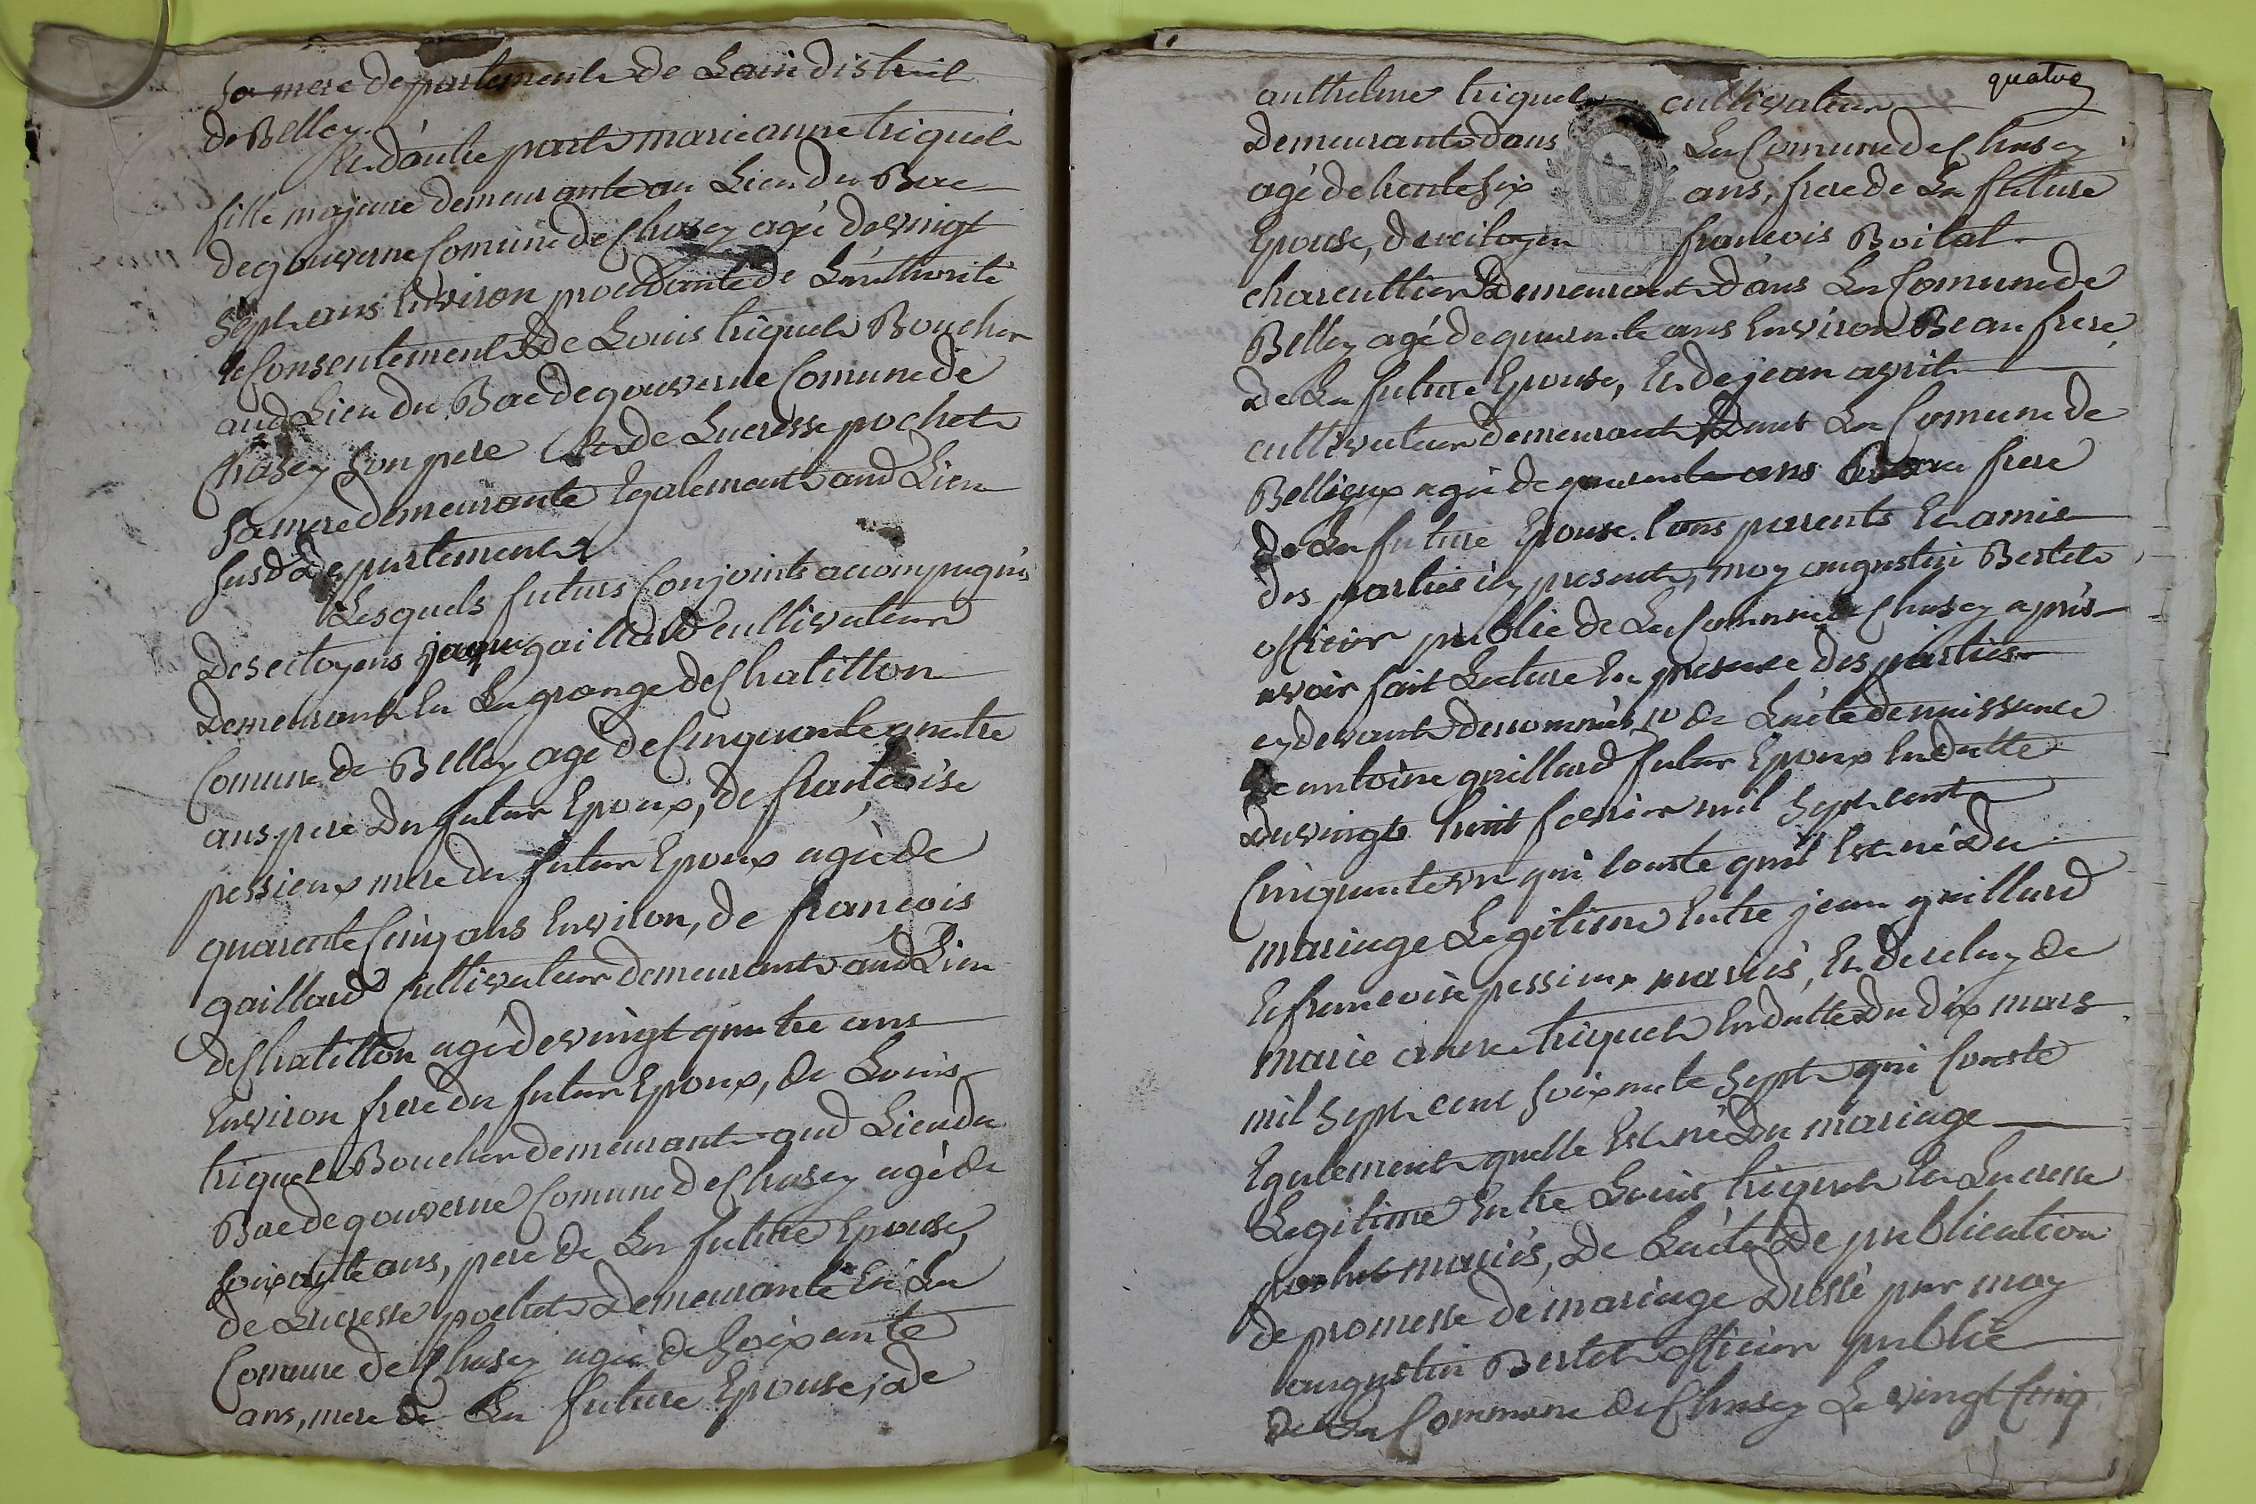 sa mere departement de Lain district
de Belley
Et d'autre part marie anne triquet
fille majeure demeurante au Lieu du Bac
de gouverne Comune de Chasey agée de vingt
sept ans Environ procedante de L'authorité
et Consentement de Louis triquet Boucher
aud Lieu du Bac de gouverne Comune de
Chasey son pere Et de Lucresse pochet
sa mere demeurante Egalement aud Lieu
susd departement
Lesquels futurs Conjoints accompagnés
des citoyens gaillard cultivateur
demeurant En La grange de Chatillon
Comune de Belley agé de Cinquante quatre
ans pere du futur Epoux, de francoise
pessieux mere du futur Epoux agée de
quarente Cinq ans Environ, de francois
gaillard Cultivateur demeurant aud Lieu
de Chatillon agé de vingt quatre ans
Environ frere du futur Epoux, de Louis
triquet Boucher demeurant aud Lieu du
Bac de gouverne Comune de Chasey agé de
soixante ans, pere de La future Epouse,
de Lucresse pochet demeurante En La
Comune de Chasey agée de soixante
ans, mere de La future Epouse, de
quatre
anthelme triquet cultivateur
demeurant dans La Comune de Chasey
agé de trente six ans, frere de La future
Epouse, du citoyen francois Boitat
charcuttier demeurant dans La Comune de
Belley agé de quarente ans Environ Beau frere
de La future Epouse, Et de jean aprit
cultivateur demeurant dans La Comune de
Bellieux agé de quarente ans Beau frere
de La future Epouse. tous parents Et amis
des parties icy presents, moy augustin Bertet
officier public de La Comune de Chasey après
avoir fait Lecture En presence des parties
cy devant denommés, 1º de L'acte de naissance
de antoine gaillard futur Epoux En datte
du vingt huit fevrier mil sept cent
Cinquante un qui Conste quil Est né du
mariage Legitime Entre jean gaillard
Et francoise pessieux mariés, Et de celuy de
marie anne triquet En datte du dix mars
mil sept cent soixante sept qui Conste
Egalement quelle Est né du mariage
Legitime Entre Louis triquet Et Lucresse
pochet mariés, de L'acte de publication
de promesse de mariage dressé par moy
augustin Bertet officier public
de La Commune de Chasey Le vingt Cinq